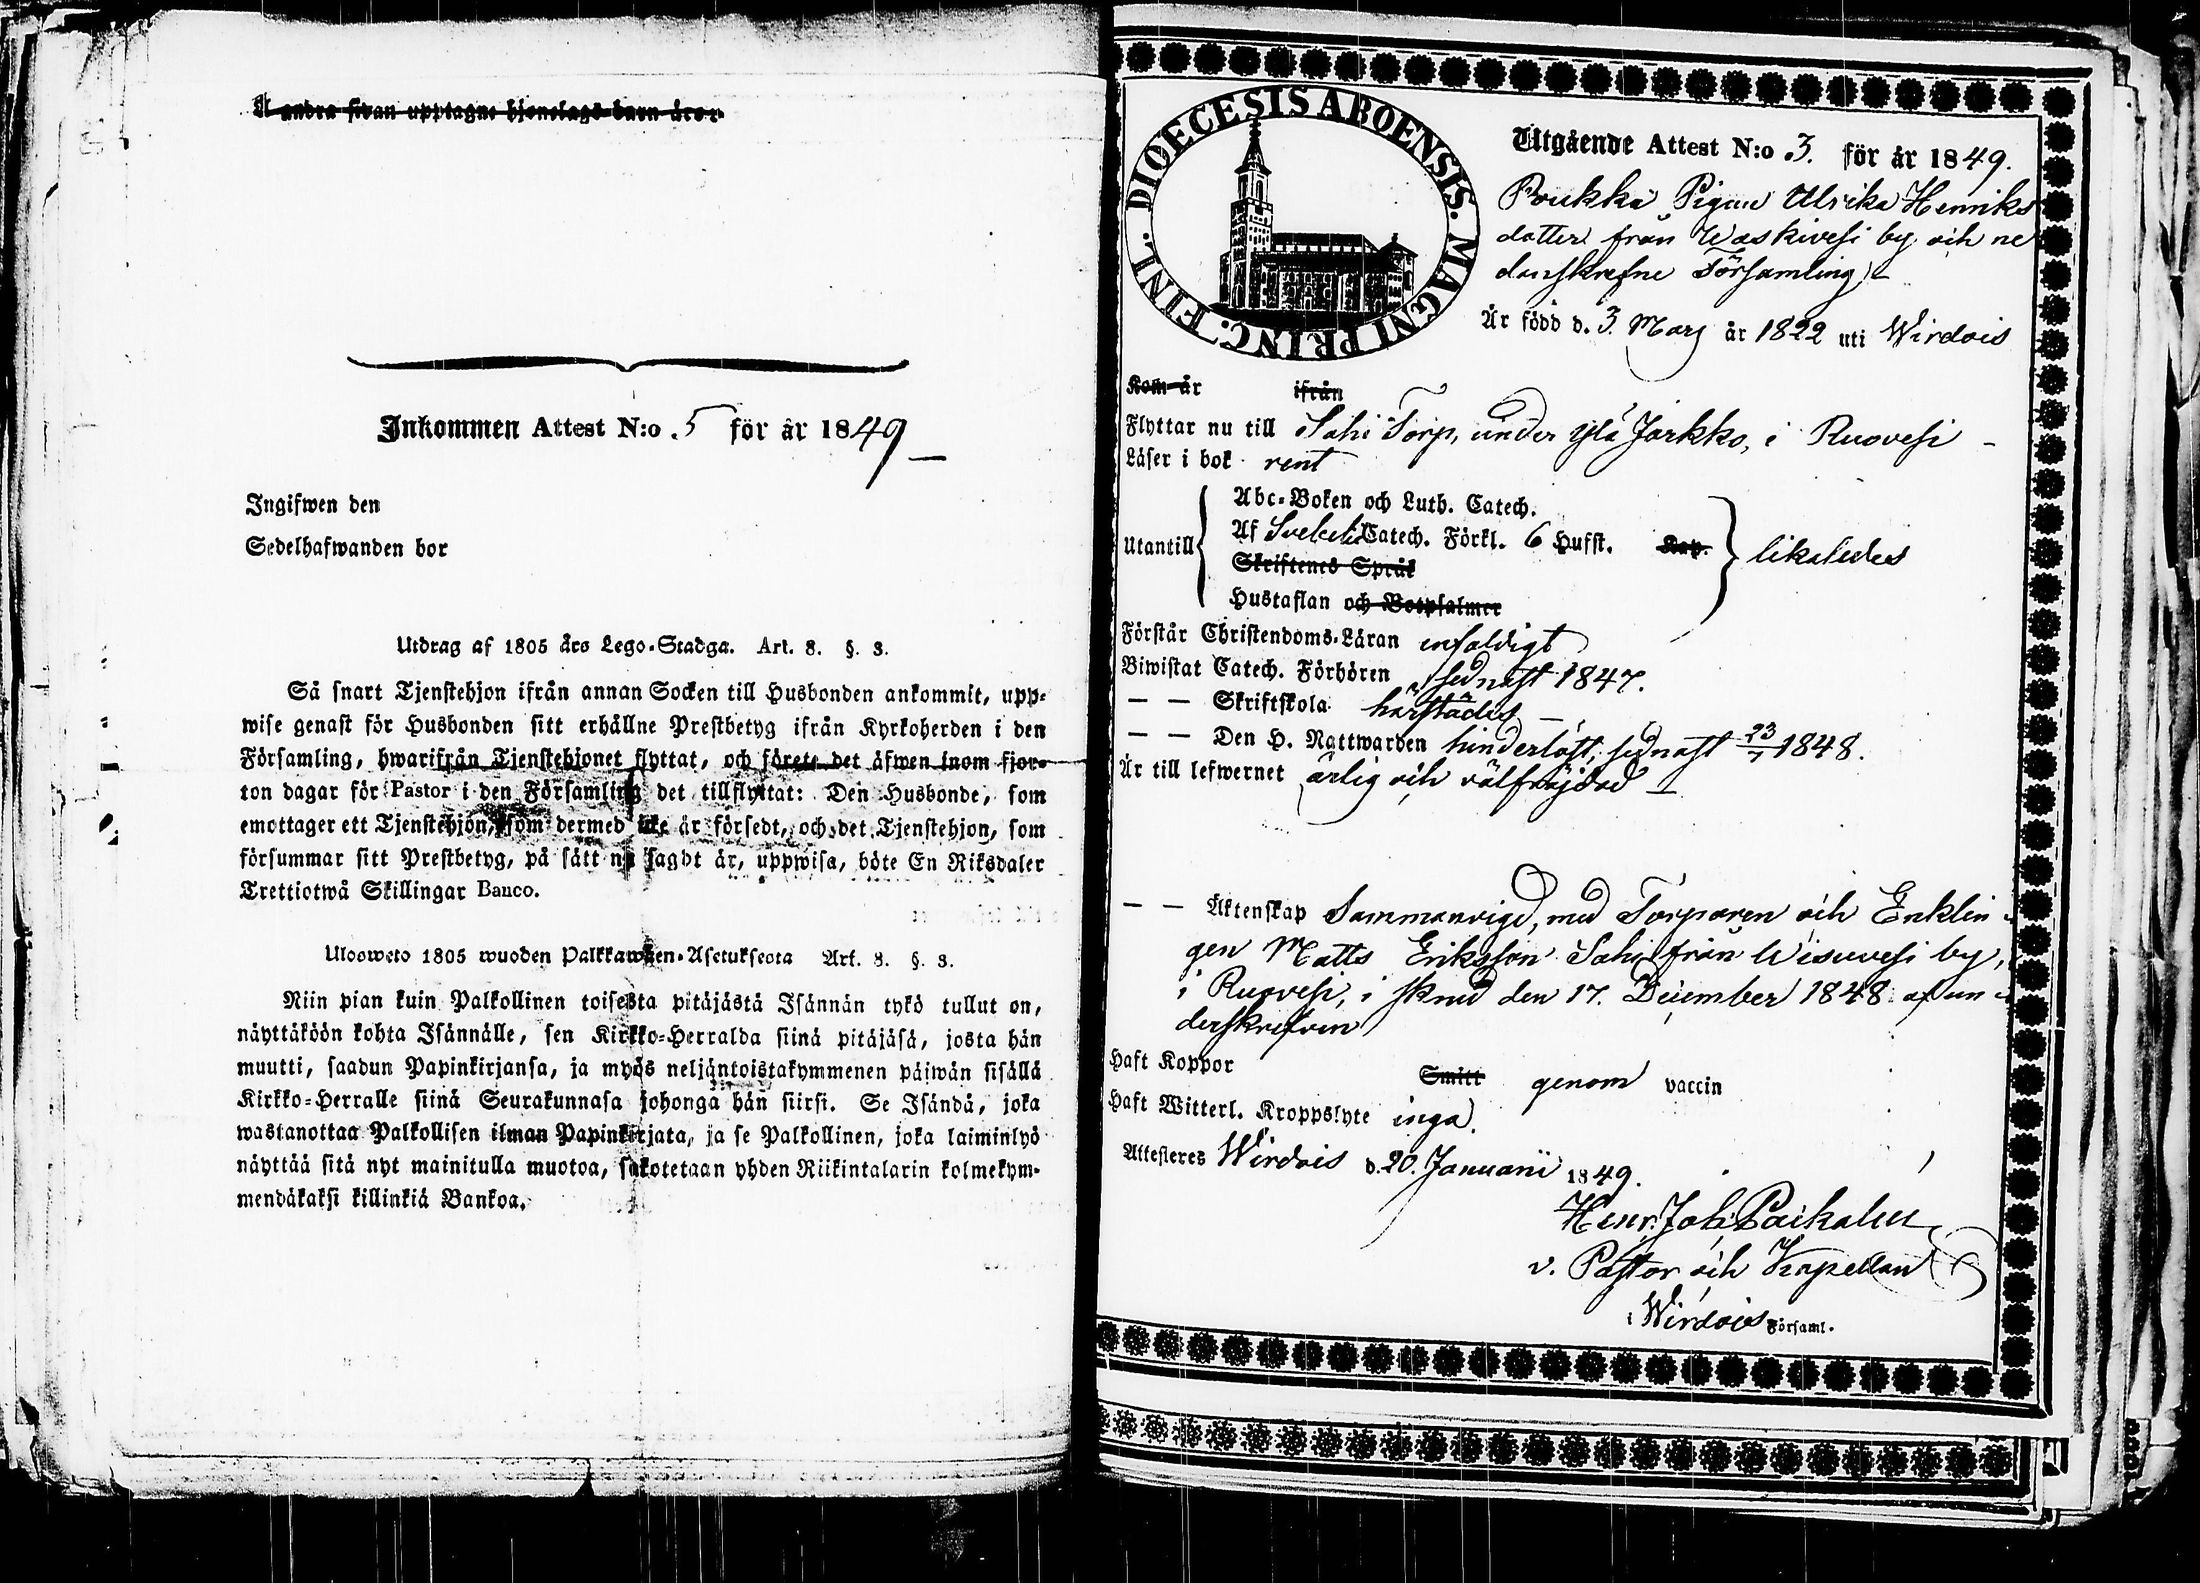 Å andra sidan upptagne hjonelags-barn äro:
Inkommen Attest N:o 5 för år 1849
Ingifwen den
Sedelhafwanden bor
Utdrag af 1805 års Lego-Stadga. Art. 8. §. 3.
Så snart Tjenstehjon ifrån annan Socken till Husbonden ankommit, upp-
wise genast för Husbonden sitt erhållne Prestbetyg ifrån Kyrkoherden i den
Församling, hwarifrån Tjenstehjonet flyttat, och förete det äfwen inom fjor-
ton dagar för Pastor i den Församling det tillflyttat: Den Husbonde, som
emottager ett Tjenstehjon, som dermed icke är försedt, och det Tjenstehjon, som
försummar sitt Prestbetyg, på sätt nu sagdt är, uppwisa, böte En Riksdaler
Trettiotwå Skillingar Banco.
Ulosweto 1805 wuoden Palkkawäen-Asetuksesta Art. 8. §. 3.
Niin pian kuin Palkollinen toisesta pitäjästä Isännän tykö tullut on,
näyttäköön kohta Isännälle, sen Kirkko-Herralda siinä pitäjäsä, josta hän
muutti, saadun Papinkirjansa, ja myös neljäntoistakymmenen päiwän sisällä
Kirkko-Herralle siinä Seurakunnasa johonga hän siirsi. Se Isändä, joka
wastanottaa Palkollisen ilman Papinkirjata, ja se Palkollinen, joka laiminlyö
näyttää sitä nyt mainitulla muotoa, sakotetaan yhden Riikintalarin kolmekym-
mendäkaksi killinkiä Bankoa.
DIOECESIS ABOENSIS. MAGNI PRINC. FINL.
Utgående Attest N:o 3. för år 1849.
Poukka Pigan Ulrika Henriks
dotter från Waskivesi by och ne
danskrefne Församling
Är född d. 3 Mars år 1822 uti Wirdois
Kom år ifrån
Flyttar nu till Sahi Torp, under Ylä Jarkko, i Ruovesi
Läser i bok rent
Abc-Boken och Luth. Catech.
Utantill Af Svebeli Catech. Förkl. 6 Hufst. Kap. likaledes
Skriftenes Språk
Hustaflan och Botpsalmer
Förstår Christendoms-Läran enfaldigt
Biwistat Catech. Förhören sednast 1847.
— — Skriftskola härstädes
— — Den H. Nattwarden hinderlöst, sednast 23/7 1848.
Är till lefwernet ärlig och välfräjdad
— — Äktenskap Sammanvigd, med Torparen och Enklin
gen Matts Eriksson Sahi från Wisuvesi by,
i Ruovesi, i skrud den 17. December 1848 af un
derskrefven
Haft Koppor Smitt genom vaccin
Haft Witterl. Kroppslyte inga.
Attesteres Wirdois d. 20. Januarii 1849.
Henr. Joh.
v. Pastor och Kapellan
i Wirdois Församl.